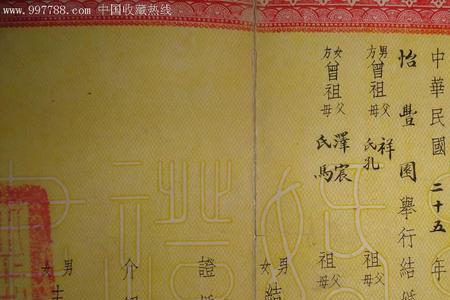 www.997788.com 中国收藏热线
中華民國 二十五 年
怡豐園 舉行結
男方曾祖父母 祥 氏孔 祖父母
女方曾祖父母 澤宸 氏馬 祖父母
男女結
證
介
男女主